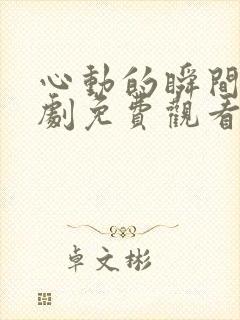 心動的瞬間
劇免費觀看
卓文彬